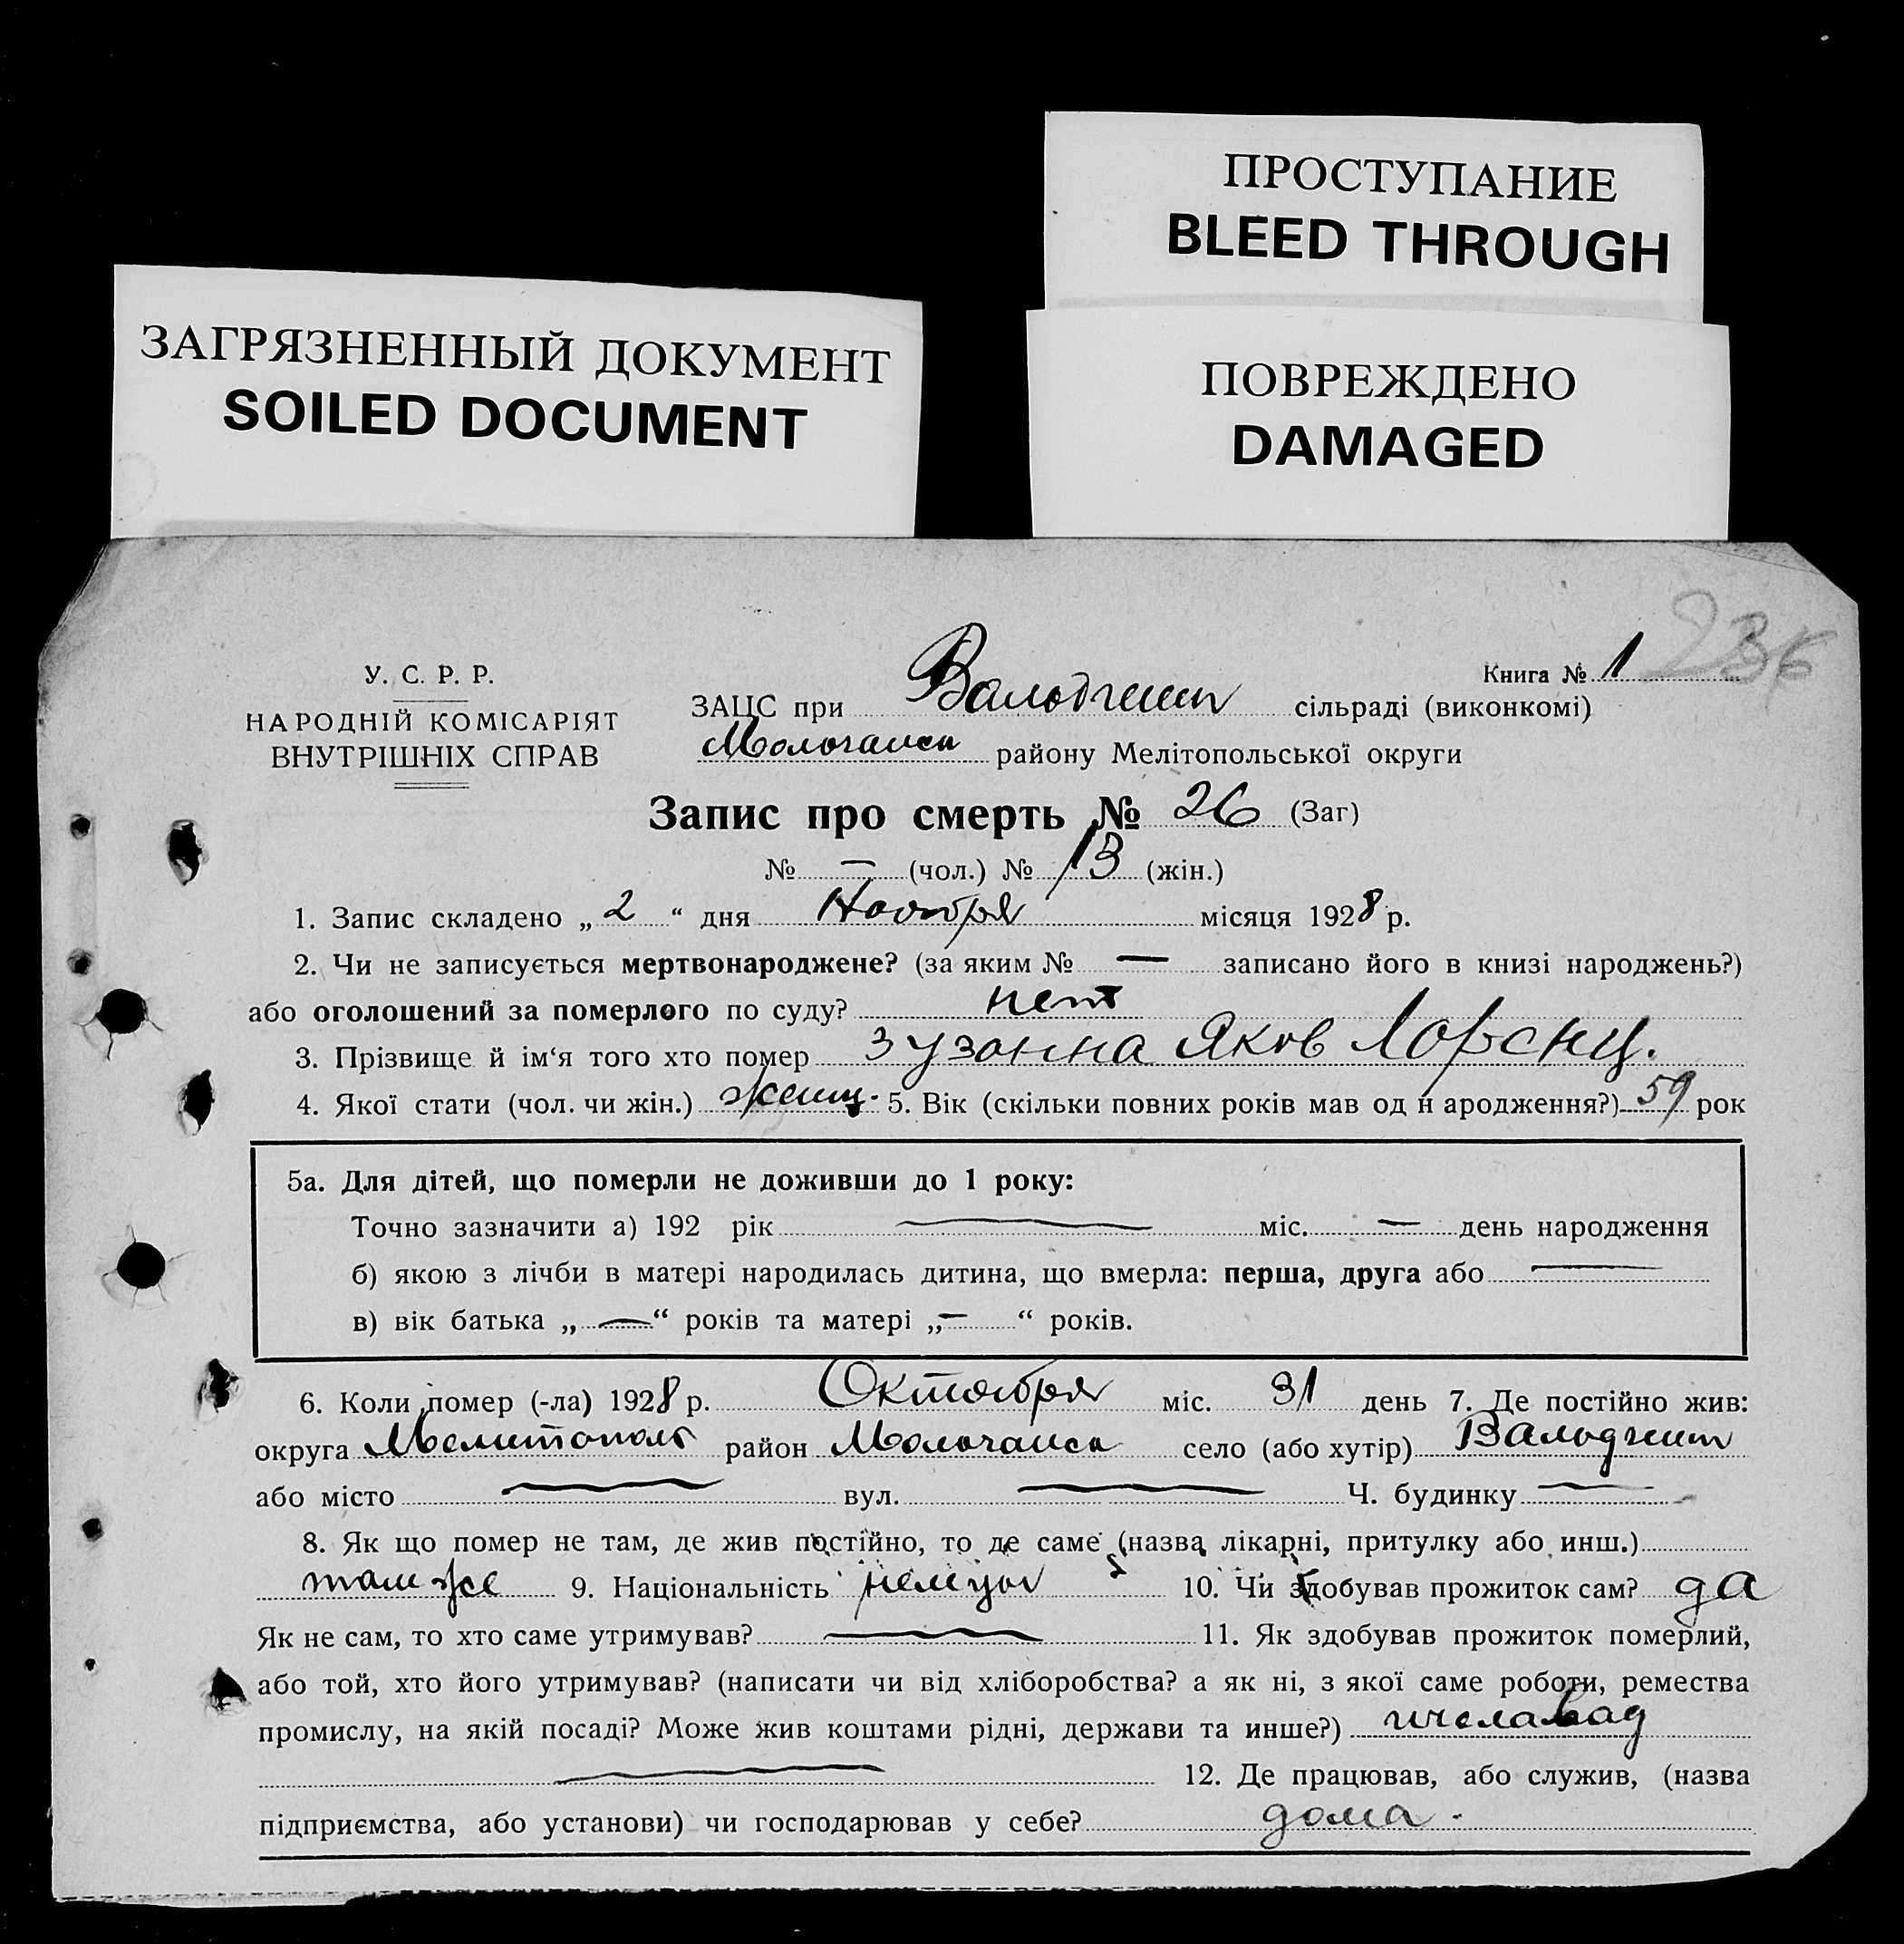 ПРОСТУПАНИЕ
BLEED THROUGH
ЗАГРЯЗНЕННЫЙ ДОКУМЕНТ
SOILED DOCUMENT
ПОВРЕЖДЕНО
DAMAGED
236
У. С. Р. Р.
НАРОДНІЙ КОМІСАРІЯТ
ВНУТРІШНІХ СПРАВ
Книга № 1
ЗАЦС при Вальдгейм сільраді (виконкомі)
Молочанск району Мелітопольської округи
Запис про смерть № 26 (Заг)
№ — (чол.) № 13 (жін.)
1. Запис складено „ 2 “ дня Ноября місяця 1928 р.
2. Чи не записується мертвонароджене? (за яким № — записано його в книзі народжень?)
або оголошений за померлого по суду? нет
3. Прізвище й ім‘я того хто помер Зузанна Яков Лоренц.
4. Якої стати (чол. чи жін.) женщ. 5. Вік (скільки повних років мав од н ародження?) 59 рок
5а. Для дітей, що померли не доживши до 1 року:
Точно зазначити а) 192 рік — міс. — день народження
б) якою з лічби в матері народилась дитина, що вмерла: перша, друга або —
в) вік батька „ — “ років та матері „ — “ років.
6. Коли помер (-ла) 1928 р. Октября міс. 31 день 7. Де постійно жив:
округа Мелитополь район Молочанск село (або хутір) Вальдгейм
або місто — вул. — Ч. будинку —
8. Як що помер не там, де жив постійно, то де саме (назва лікарні, притулку або инш.)
там же 9. Національність немцы 10. Чи здобував прожиток сам? да
Як не сам, то хто саме утримував? — 11. Як здобував прожиток померлий,
або той, хто його утримував? (написати чи від хліборобства? а як ні, з якої саме роботи, ремества
промислу, на якій посаді? Може жив коштами рідні, держави та инше?)
— 12. Де працював, або служив, (назва
підприємства, або установи) чи господарював у себе? дома.